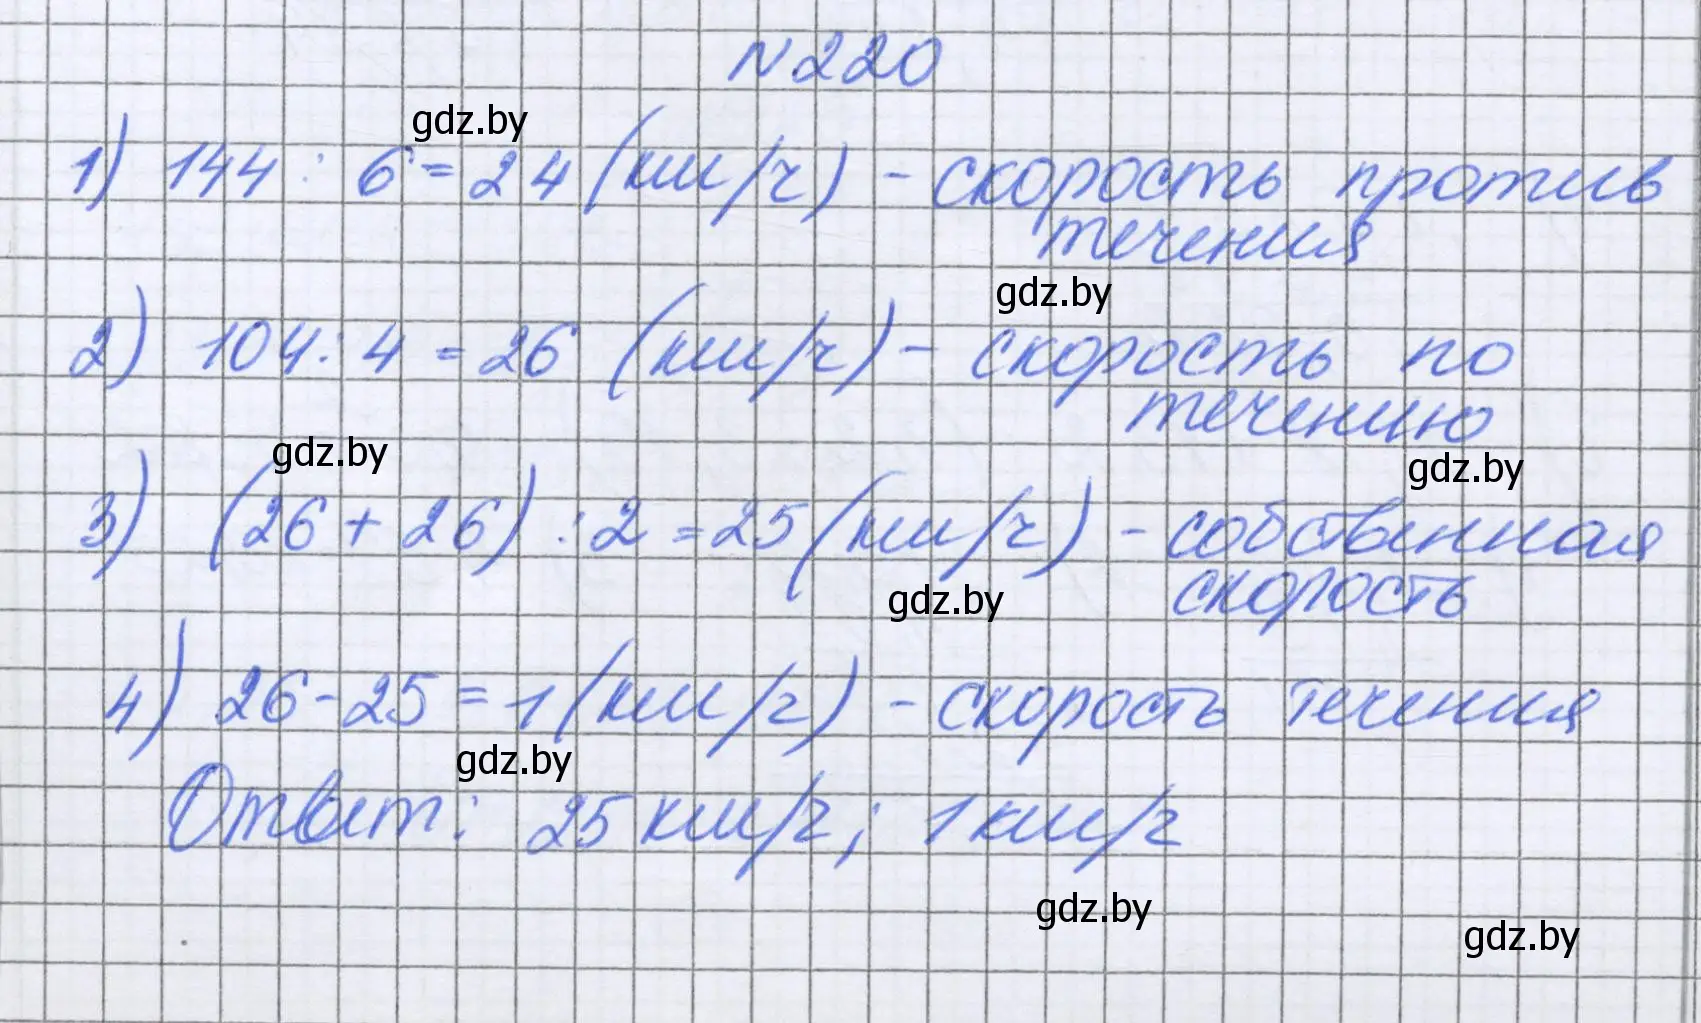 N220
gdz.by
1) 144 : 6 = 24 (км/ч) - скорость против
течения
gdz.by
2) 104 : 4 = 26 (км/ч) - скорость по
течению
gdz.by
gdz.by
3) (26 + 26) : 2 = 25 (км/ч) - собственная
скорость
gdz.by
4) 26 - 25 = 1 (км/ч) - скорость течения
gdz.by
Ответ: 25 км/ч; 1 км/ч
gdz.by
gdz.by